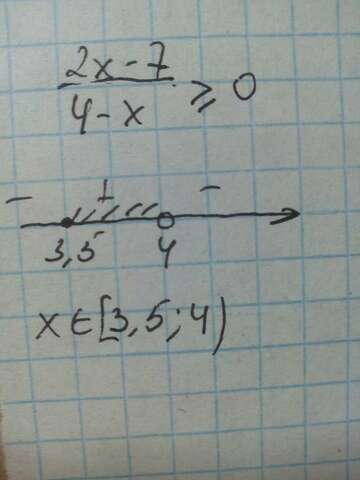 2x-7
4-x ≥ 0
- + -
3,5 4
x∈[3,5;4)